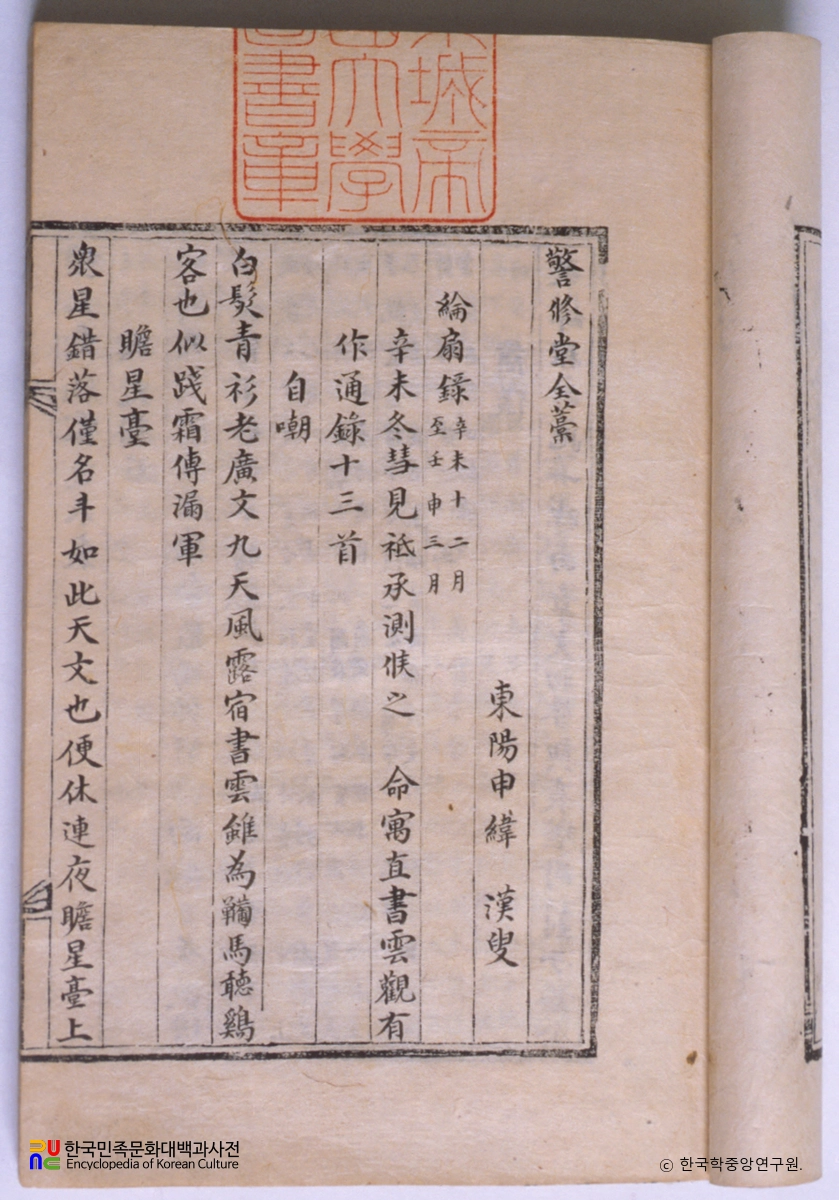 警修堂全藁
東陽申緯 漢叟
綸扇錄 辛未十二月
至壬申三月
辛未冬彗見祗承測候之 命寓直書雲觀有
作通錄十三首
自嘲
白髮青衫老廣文九天風露宿書雲雖為韉馬聽鷄
客也似踐霜傳漏軍
瞻星臺
衆星錯落僅名斗如此天文也便休連夜瞻星臺上
城帝
大學
書章
한국민족문화대백과사전
Encyclopedia of Korean Culture
ⓒ 한국학중앙연구원.